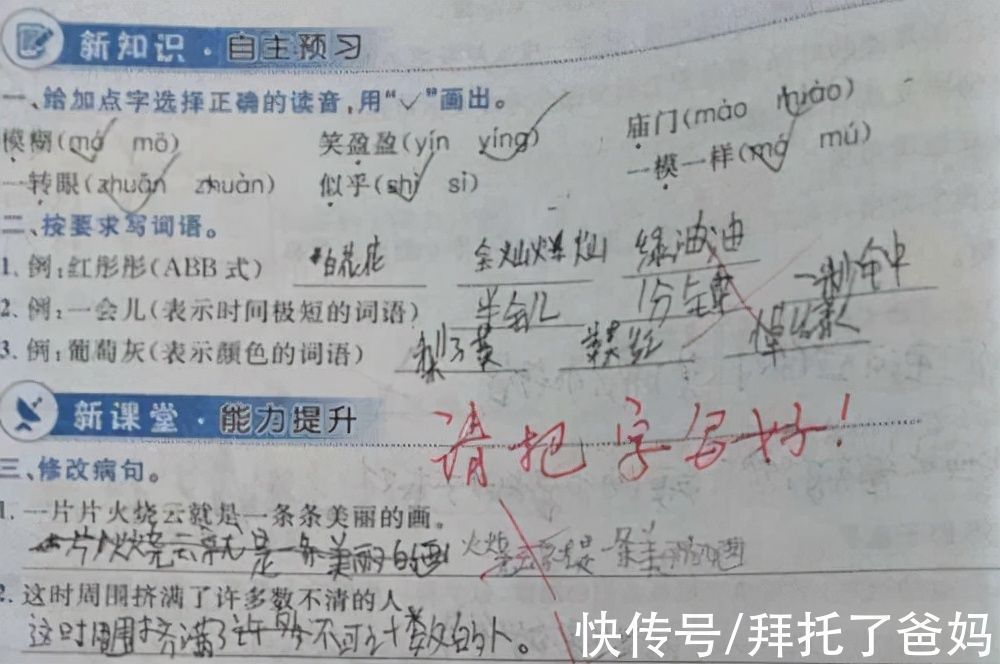 新知识·自主预习
一、给加点字选择正确的读音，用“✓”画出。
模糊(mó mō) 笑盈盈(yín yíng) 庙门(mào miào)
一转眼(zhuǎn zhuàn) 似乎(shì sì) 一模一样(mó mú)
二、按要求写词语。
1. 例：红彤彤(ABB式) 白花花 金灿灿 绿油油
2. 例：一会儿(表示时间极短的词语) 半会儿 1分钟
3. 例：葡萄灰(表示颜色的词语) 梨子黄
请把字写好！
新课堂·能力提升
三、修改病句。
1. 一片片火烧云就是一条条美丽的画。
火烧云就是一条美丽的画
2. 这时周围挤满了许多数不清的人。
这时周围挤满了许多不可计数的人。
快传号/拜托了爸妈